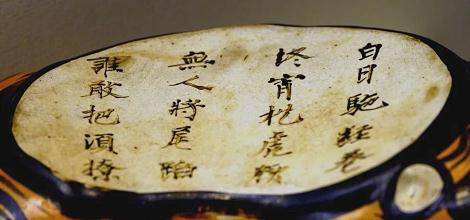 白日駞經卷
終宵枕虎腰
無人將尾蹈
誰敢把須撩